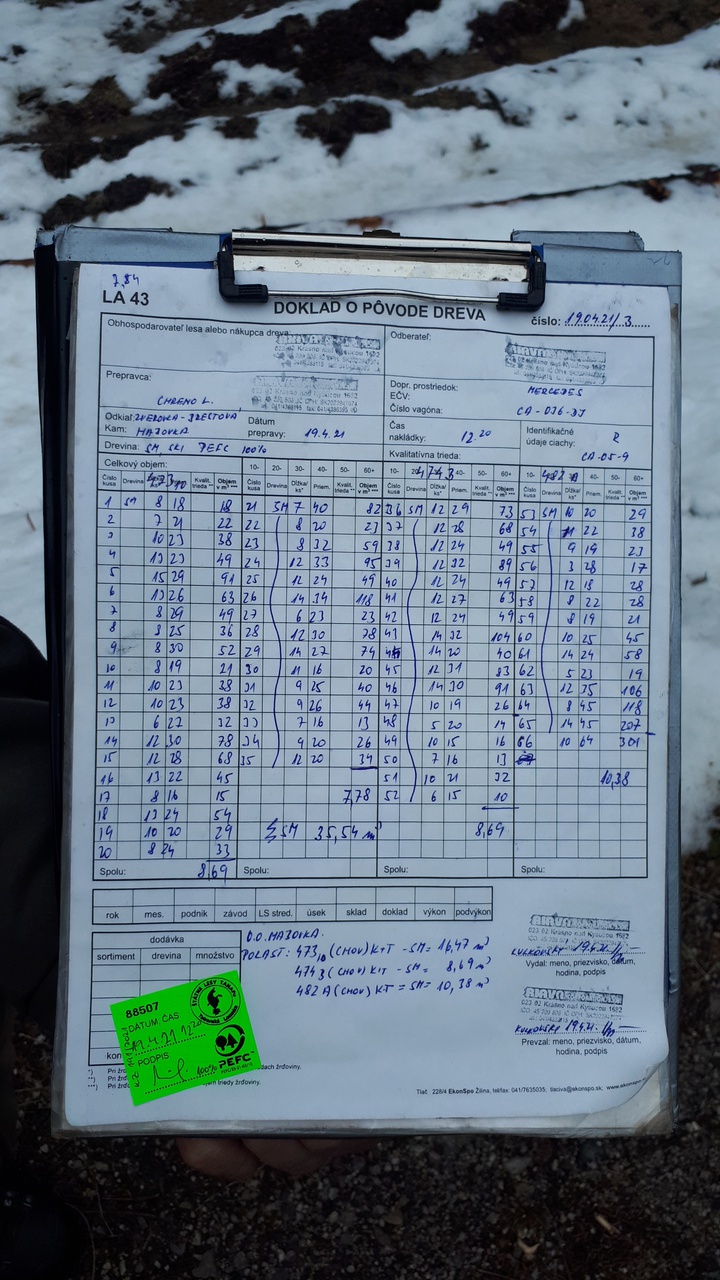 7,84
LA 43
DOKLAD O PÔVODE DREVA
číslo: 19.04.21/3
Obhospodarovateľ lesa alebo nákupca dreva:
Odberateľ:
Prepravca:
CHRENO L.
Dopr. prostriedok: MERCEDES
EČV:
Číslo vagóna: CA-036-DJ
Odkiaľ: ZVEROVKA-BRESTOVÁ
Kam: HÁJOVKA
Dátum prepravy: 19.4.21
Čas nakládky: 12.20
Identifikačné údaje ciachy: R CA-05-9
Drevina: SM, SKI PEFC 100%
Kvalitatívna trieda:
Celkový objem:
10- 20- 30- 40- 50- 60+
10- 40- 50- 60+
10- 40- 50- 60+
Číslo kusa Drevina Kvalit. trieda ** Objem v m³ ***
Číslo kusa Drevina Dĺžka/ ks* Priem. Kvalit. trieda ** Objem v m³ ***
Číslo kusa Drevina Dĺžka/ ks* Priem. Kvalit. trieda ** Objem v m³ ***
Číslo kusa Drevina Priem. Kvalit. trieda ** Objem v m³ ***
1 SM 8 18 18 21 SM 7 40 82 36 SM 12 29 73 53 SM 10 20 29
2 7 21 22 22 8 20 23 37 12 28 68 54 11 22 38
3 10 23 38 23 8 32 59 38 12 24 49 55 9 19 23
4 13 23 49 24 12 33 95 39 12 32 89 56 3 28 17
5 15 29 91 25 12 24 49 40 12 24 49 57 12 18 28
6 13 26 63 26 14 34 118 41 12 27 63 58 8 22 28
7 8 29 49 27 6 23 23 42 12 24 49 59 8 19 21
8 3 25 36 28 12 30 78 43 14 32 104 60 10 25 45
9 8 30 52 29 14 27 74 44 14 20 40 61 14 24 58
10 8 19 21 30 11 16 20 45 12 31 83 62 5 23 19
11 10 23 38 31 9 25 40 46 14 30 91 63 12 35 106
12 10 23 38 32 9 26 44 47 10 19 26 64 8 45 118
13 6 27 32 33 7 16 13 48 5 20 14 65 14 45 207
14 12 30 78 34 9 20 26 49 10 15 16 66 10 64 301
15 12 28 68 35 12 20 34 50 7 16 13
16 13 22 45 51 10 21 32 10,38
17 8 16 15 7,78 52 6 15 10
18 13 24 54
19 10 20 29 Σ SM 35,54 m³ 8,69
20 8 24 33
Spolu: 8,69 Spolu: Spolu: Spolu:
rok mes. podnik závod LS stred. úsek sklad doklad výkon podvýkon
dodávka
sortiment drevina množstvo
O.O. HÁJOVKA.
PORAST: 473 10 (CHOV) KTT - SM = 16,47 m³
474 3 (CHOV) KTT - SM = 8,69 m³
482 A (CHOV) KT = SM = 10,38 m³
KULKOVSKI 19.4.21
Vydal: meno, priezvisko, dátum,
hodina, podpis
KULKOVSKI 19.4.21.
Prevzal: meno, priezvisko, dátum,
hodina, podpis
88507
DÁTUM ČAS
19.4.21
PODPIS
100%
PEFC
ŠTÁTNE LESY TANAPU
Tlač 228/4 EkonSpo Žilina, tel/fax: 041/7635035, tlaciva@ekonspo.sk,